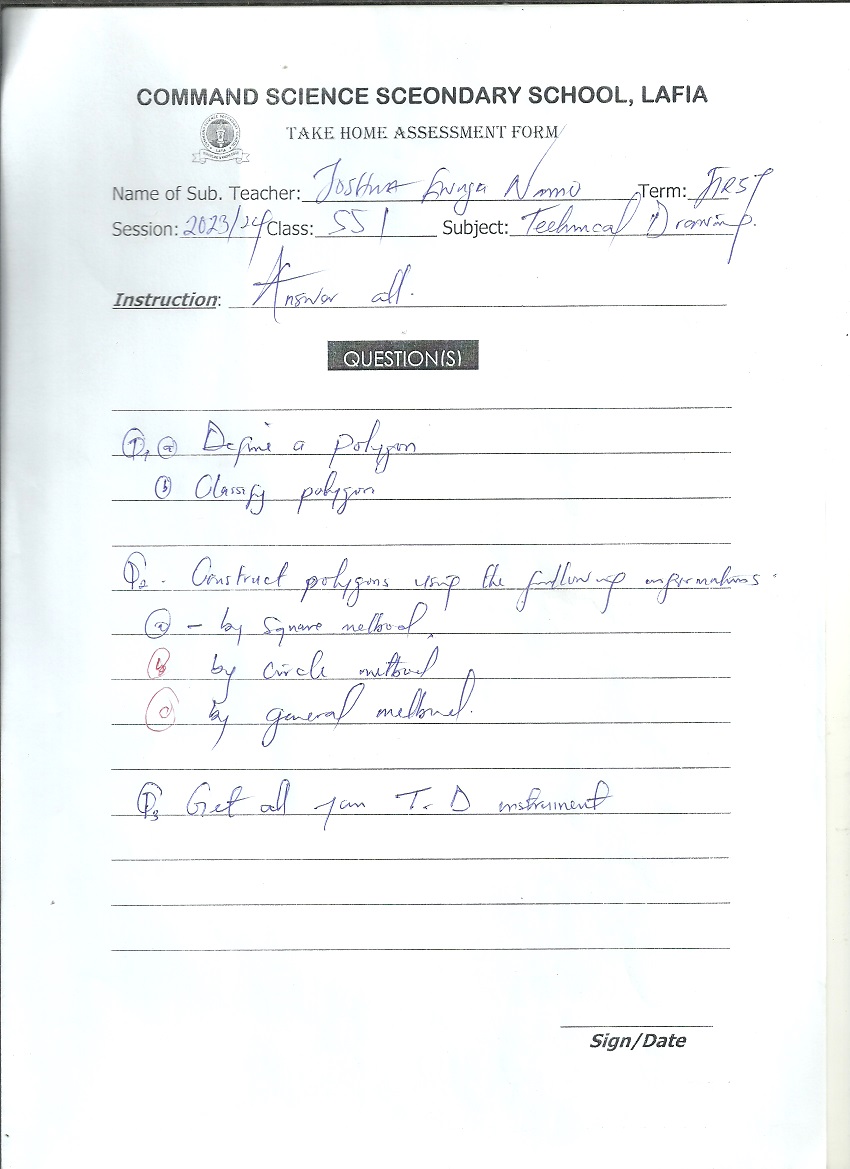 COMMAND SCIENCE SCEONDARY SCHOOL, LAFIA
TAKE HOME ASSESSMENT FORM
Name of Sub. Teacher: Joshua Term: FIRST
Session: 2023/24 Class: SS 1 Subject: Technical Drawing.
Instruction: Answer all.
QUESTION(S)
Q1 (a) Define a polygon
(b) Classify polygon
Q2. Construct polygons using the following informations.
(a) - by Square method.
(b) by circle method
(c) by general method.
Q3 Get all your T.D instrument
Sign/Date